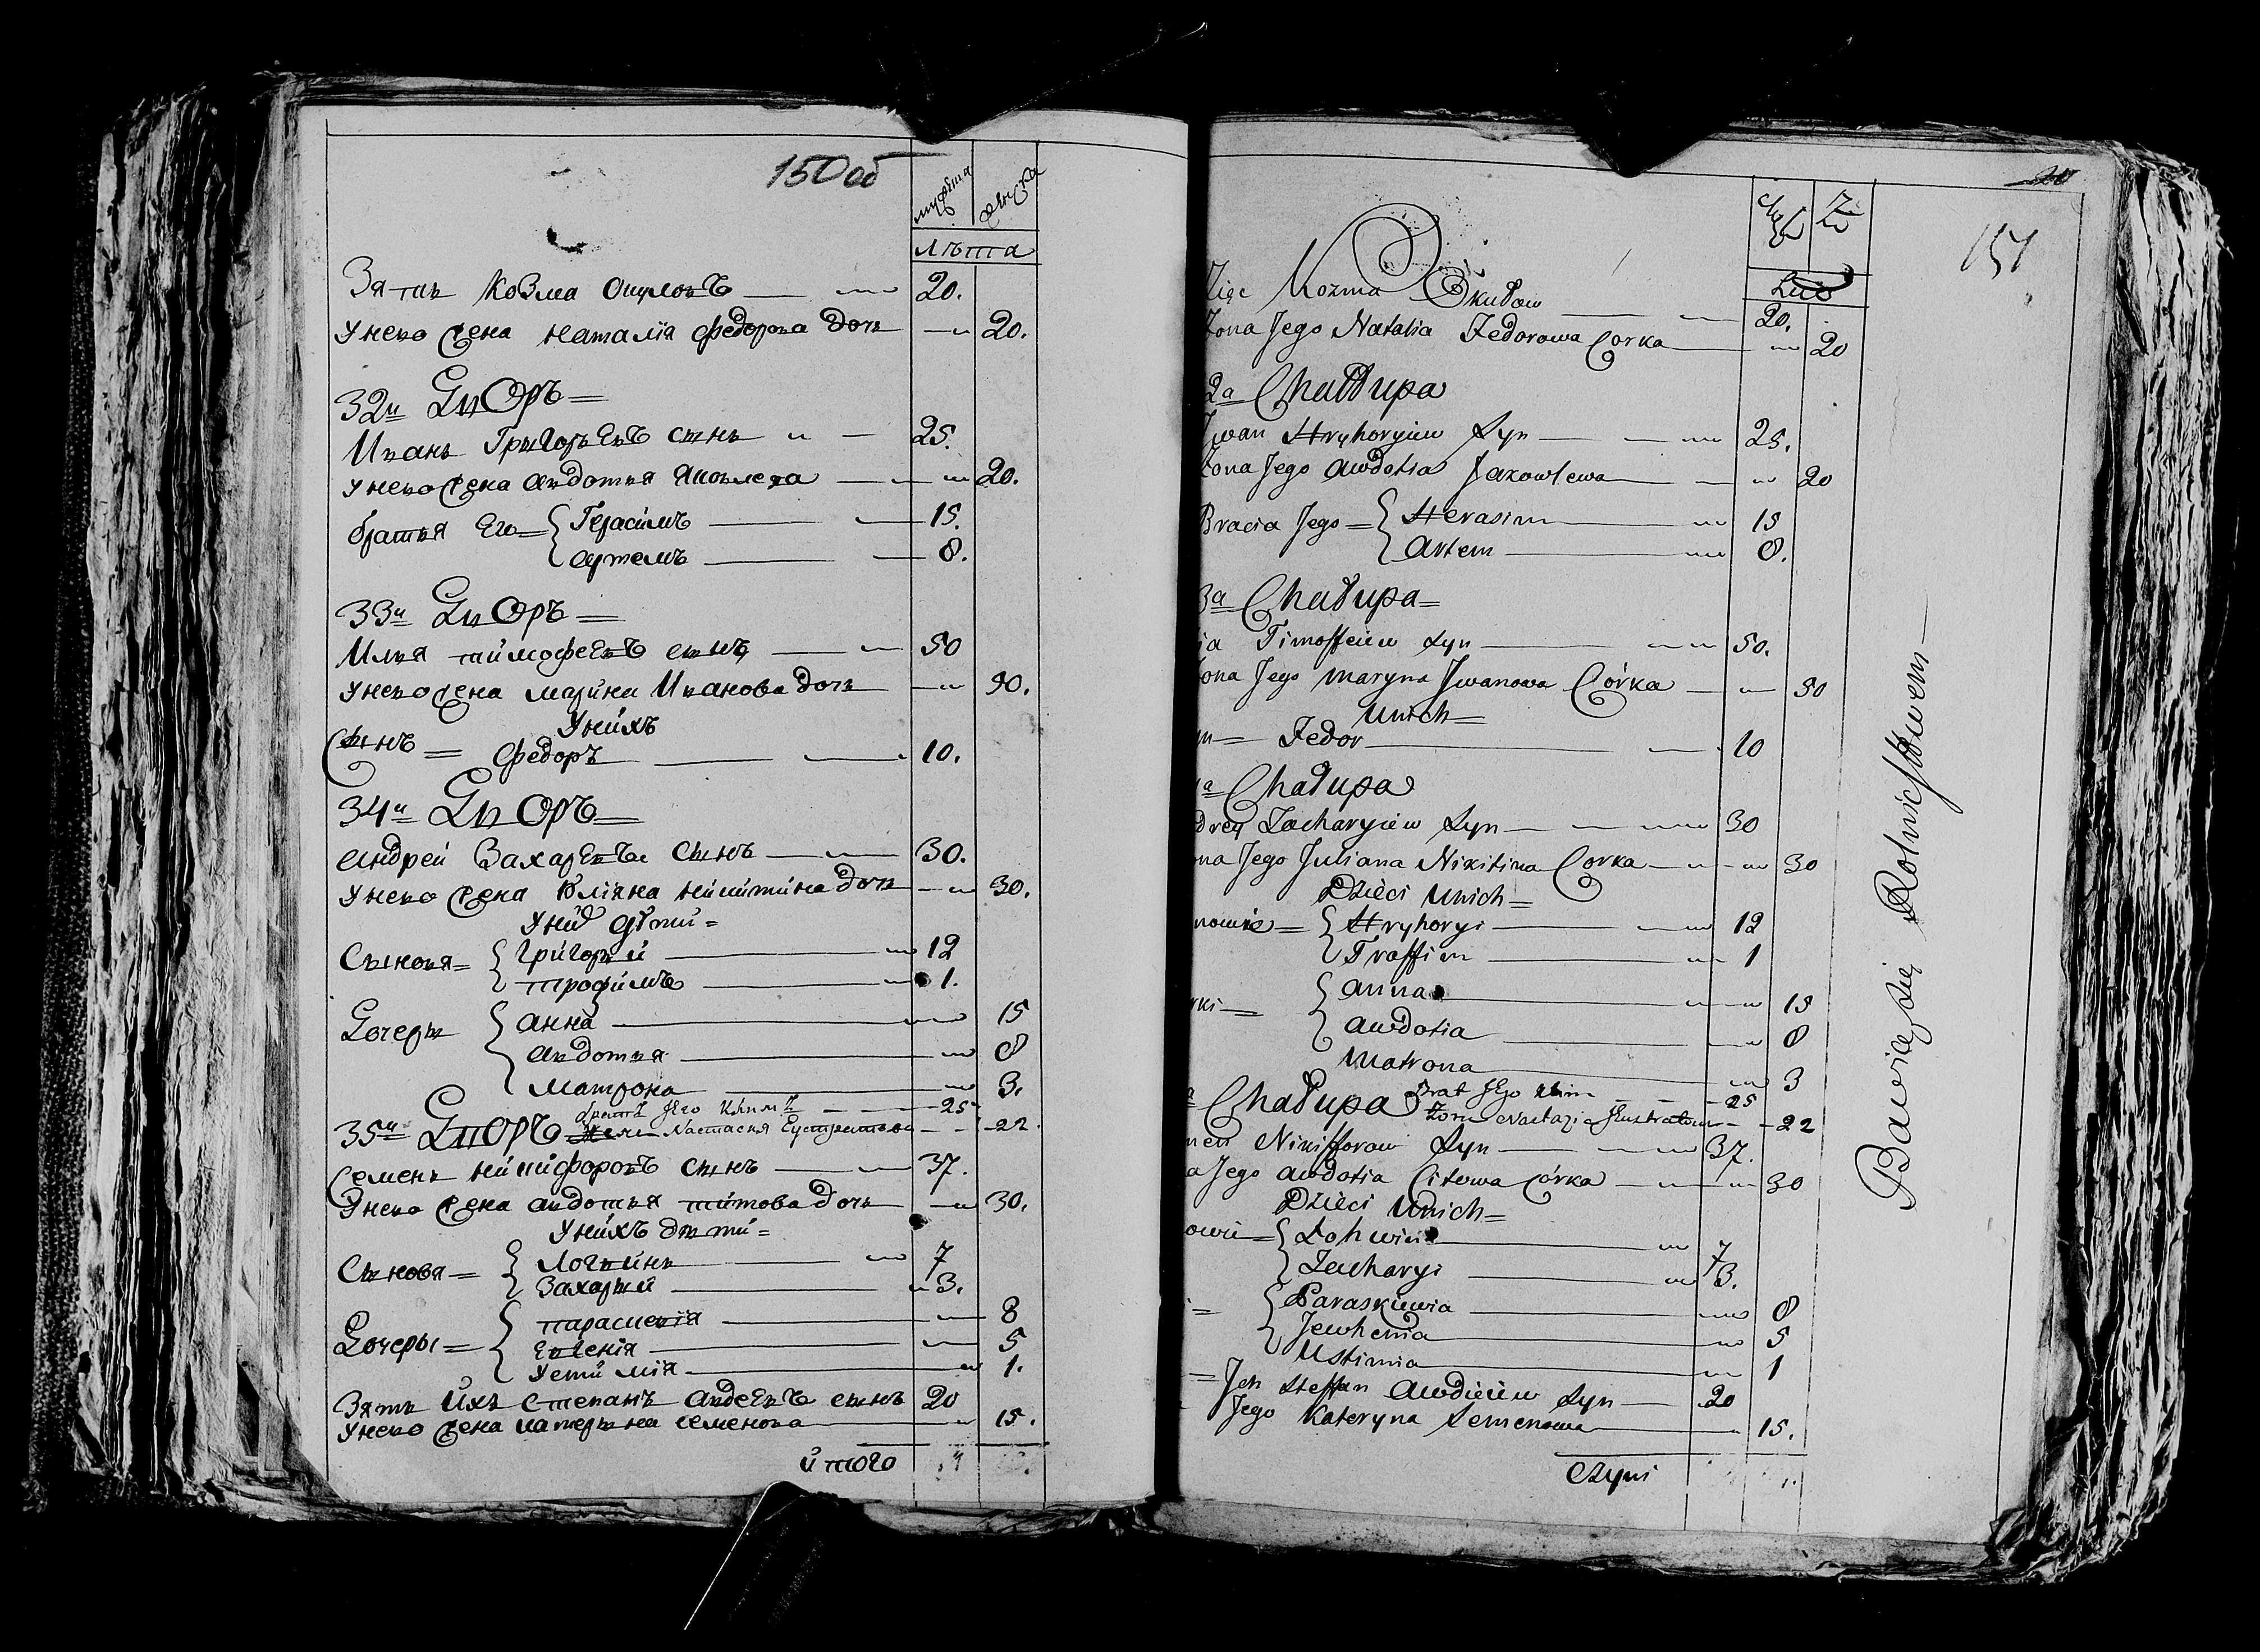 150 об
мужеска
женска
лѣта
Зять Козма Окуловъ 20.
У него жена Наталiя Федорова дочь 20.
32й Дворъ
Иванъ Григорьевъ сынъ 25.
У него жена Авдотья Яковлева 20.
братья Его { Герасимъ 15.
Артемъ 8.
33й Дворъ
Илья Тимофеевъ сынъ 50
У него жена Марина Иванова дочь 50.
У нихъ
Сынъ Федоръ 10.
34й Дворъ
Андрей Захарьевъ сынъ 30.
У него жена Юлiяна Никитина дочь 30.
У них дѣти
Сыновья { Григорьй 12
Трофимъ 1.
Дочеры { Анна 15
Авдотья 8
Матрона 3.
братъ Его Климъ 25
35й Дворъ Жена Настасья Еустратова 22
Семенъ Никифоровъ сынъ 37.
У него жена Авдотья Титова дочь 30.
У нихъ дѣти
Сынова { Логвинъ 7
Захарый 3.
Дочеры { Параскевiя 8
Евгенiя 5
Устимiя 1.
Зять Ихъ Степанъ Авдеевъ сынъ 20
У него жена Катерына Семенова 15.
итого
151
Lat
Zięc Kozma Okułow 20.
Żona Jego Natalia Fedorowa Corka 20
2a Chałupa
Jwan Hryhoryiew Syn 25.
Żona Jego Awdotia Jakowlewa 20
Bracia Jego { Herasim 15
Artem 8.
3a Chałupa
ia Timoffeiew Syn 50.
ona Jego Maryna Jwanowa Córka 50
Unich
yn Fedor 10
a Chałupa
drey Zacharyiew Syn 30
ona Jego Juliana Nikitina Corka 30
Dzieci Unich
nowie { Hryhoryi 12
Traffim 1
rki { Anna 15
Awdotia 8
Matrona 3
Brat Jego Klim 25
a Chałupa Żona Nastazia Eustratow 22
men Nikifforow Syn 37.
a Jego Awdotia Citowa Córka 30
Dzieci Unich
owie { Lohwin 7
Zacharyi 3.
{ Paraskiewia 8
Jewhenia 5
Ustimia 1
Jch Steffan Awdieiew Syn 20
Jego Kateryna Semenowa 15.
Czyni
Bawią się Rolnictwem